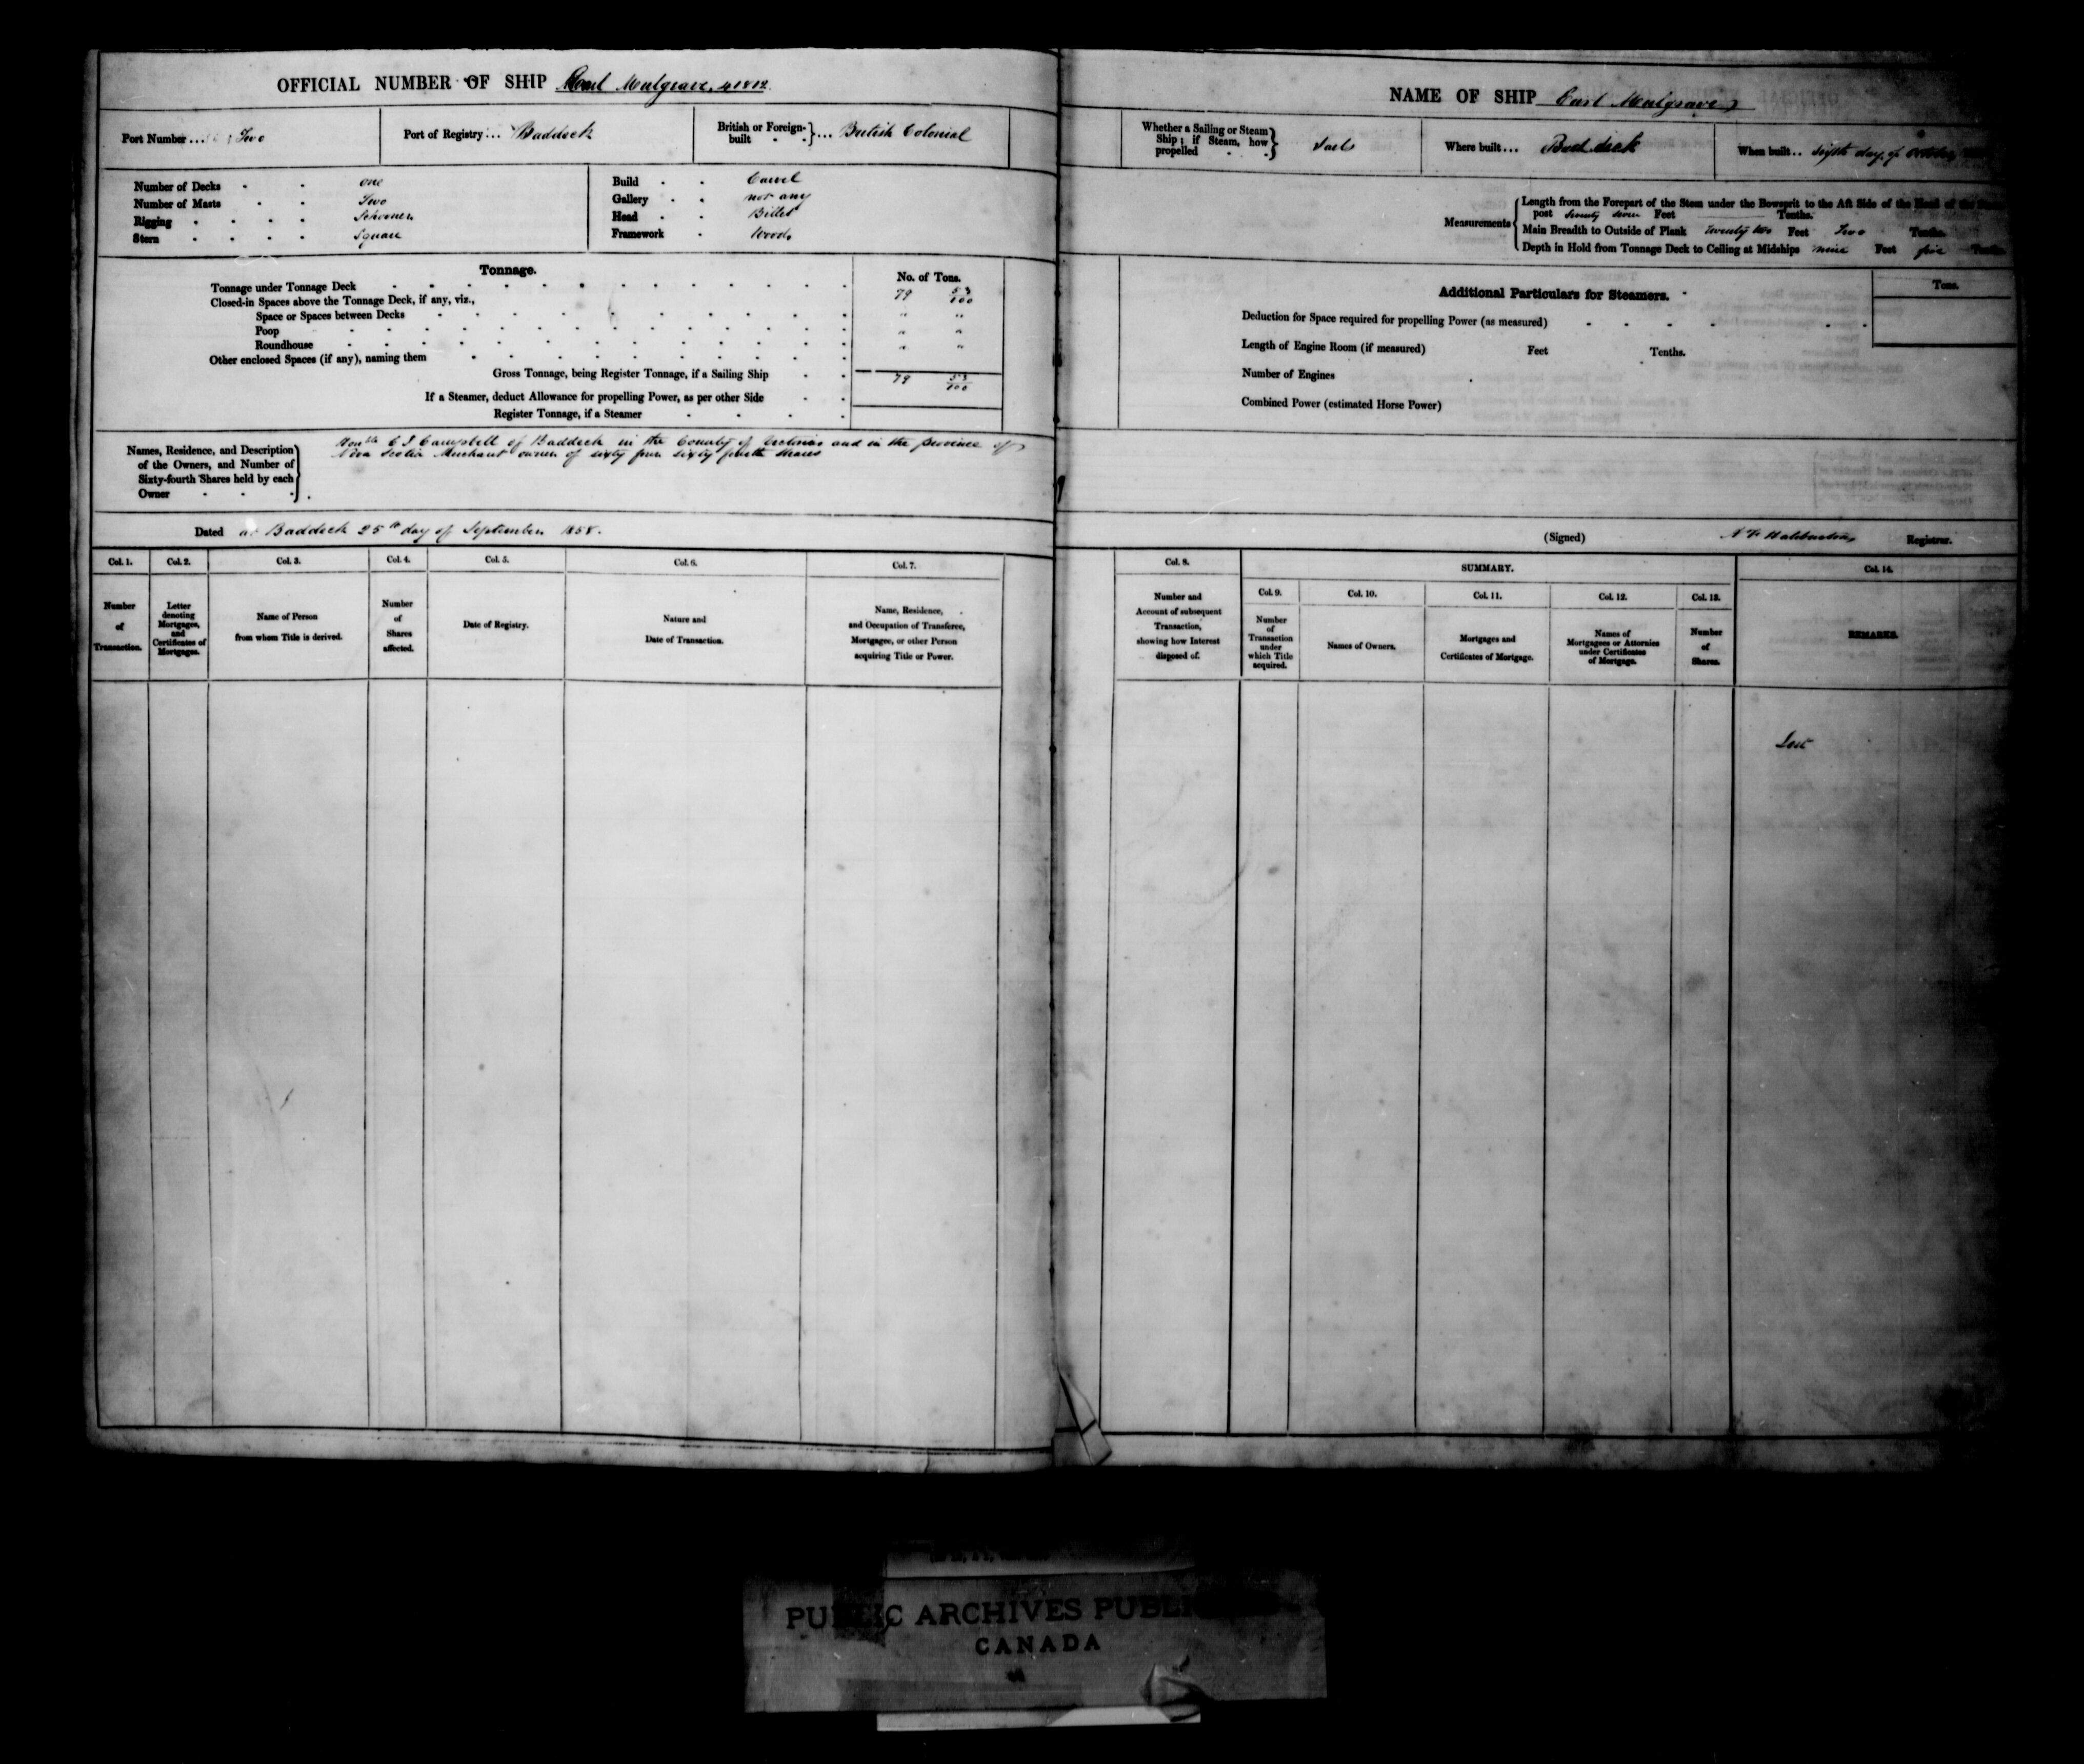 OFFICIAL NUMBER OF SHIP Earl Mulgrave. 41812
Port Number ... Two
Port of Registry ... Baddeck
British or Foreign-built } ... British Colonial
Number of Decks one
Number of Masts Two
Rigging Schooner
Stern Square
Build Carvel
Gallery not any
Head Billet
Framework Wood
Tonnage.
No. of Tons.
Tonnage under Tonnage Deck 79 53/100
Closed-in Spaces above the Tonnage Deck, if any, viz.,
Space or Spaces between Decks " "
Poop " "
Roundhouse " "
Other enclosed Spaces (if any), naming them
Gross Tonnage, being Register Tonnage, if a Sailing Ship 79 53/100
If a Steamer, deduct Allowance for propelling Power, as per other Side
Register Tonnage, if a Steamer
Names, Residence, and Description of the Owners, and Number of Sixty-fourth Shares held by each Owner
Honble C J Campbell of Baddeck in the County of Victoria and in the province of
Nova Scotia Merchant owner of sixty four sixty fourth shares
Dated at Baddeck 25th day of September 1858.
Col. 1. Col. 2. Col. 3. Col. 4. Col. 5. Col. 6. Col. 7.
Number of Transaction.
Letter denoting Mortgages, and Certificates of Mortgages.
Name of Person from whom Title is derived.
Number of Shares affected.
Date of Registry.
Nature and Date of Transaction.
Name, Residence, and Occupation of Transferee, Mortgagee, or other Person acquiring Title or Power.
NAME OF SHIP Earl Mulgrave
Whether a Sailing or Steam Ship; if Steam, how propelled } Sails
Where built ... Baddeck
When built .. day of October
Measurements
Length from the Forepart of the Stem under the Bowsprit to the Aft Side of the Head of the
post Seventy seven Feet Tenths.
Main Breadth to Outside of Plank Twenty two Feet Two Tenths.
Depth in Hold from Tonnage Deck to Ceiling at Midships nine Feet five Tenths.
Additional Particulars for Steamers.
Tons.
Deduction for Space required for propelling Power (as measured)
Length of Engine Room (if measured) Feet Tenths.
Number of Engines
Combined Power (estimated Horse Power)
(Signed) Haliburton Registrar.
Col. 8. SUMMARY. Col. 14.
Col. 9. Col. 10. Col. 11. Col. 12. Col. 13.
Number and Account of subsequent Transaction, showing how Interest disposed of.
Number of Transaction under which Title acquired.
Names of Owners.
Mortgages and Certificates of Mortgage.
Names of Mortgagees or Attornies under Certificates of Mortgage.
Number of Shares.
REMARKS.
Lost
PUBLIC ARCHIVES PUBLI
CANADA